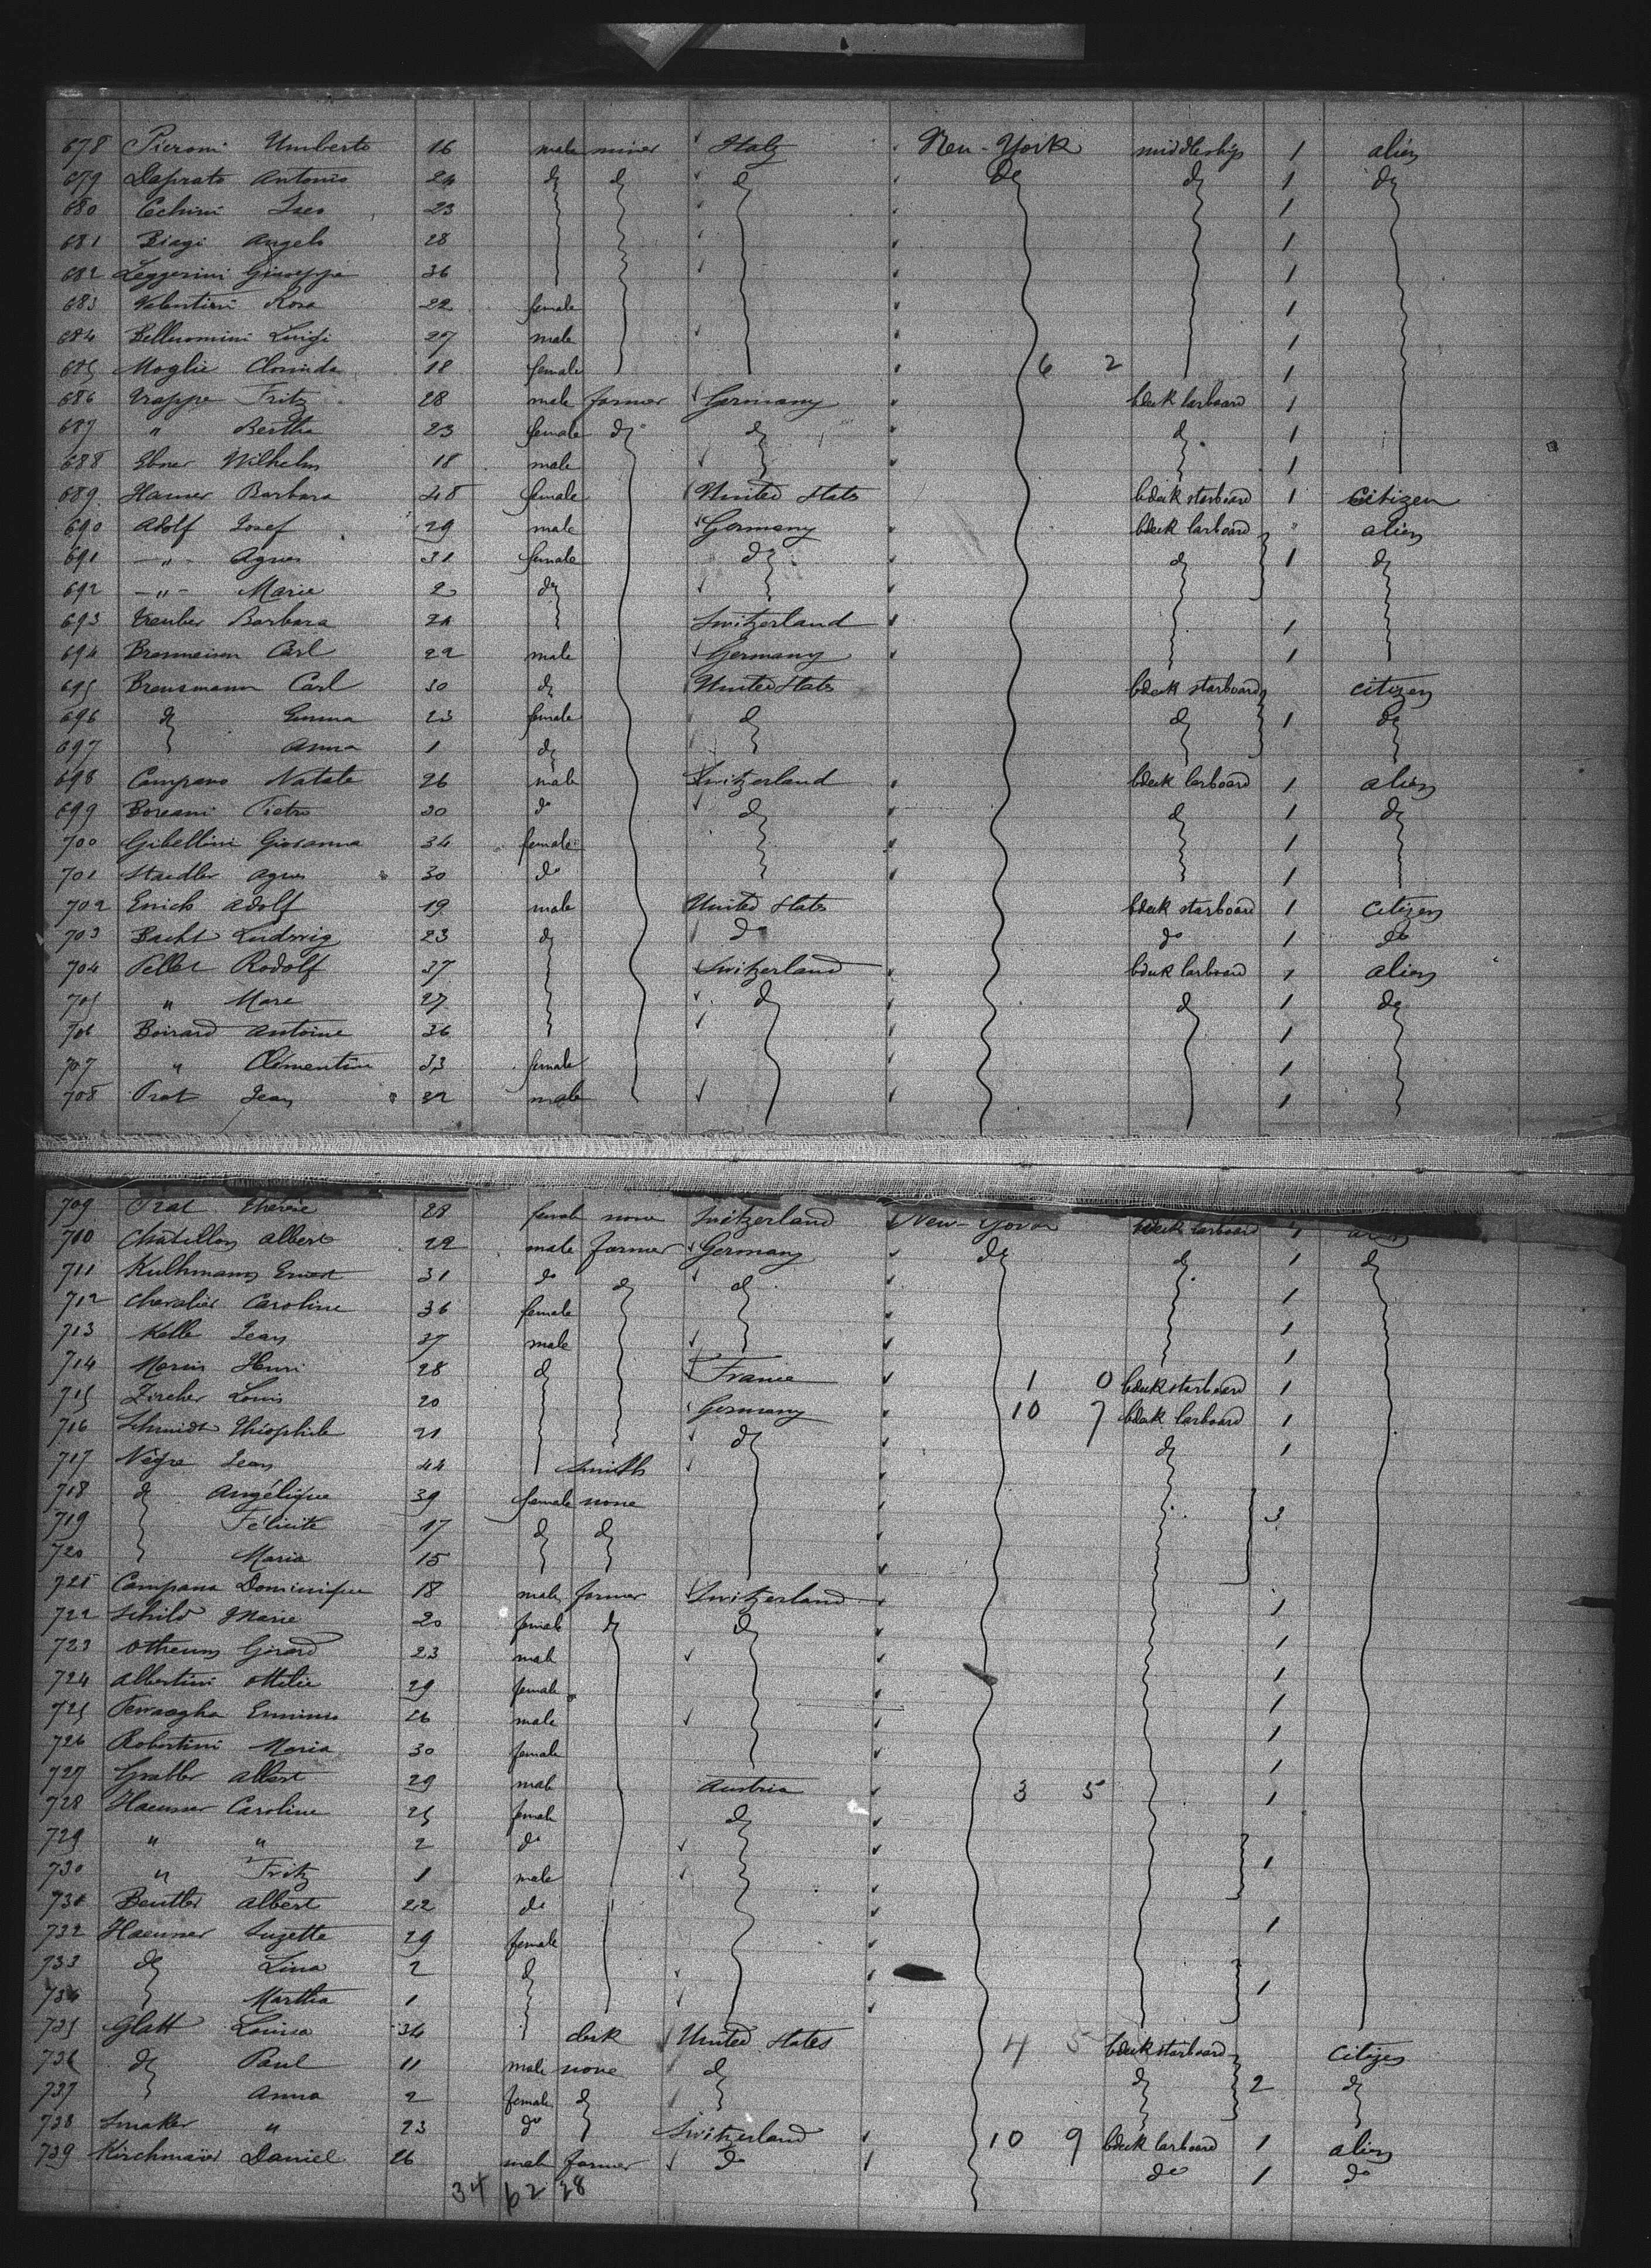 678 Pieroni Umberto 16 male miner Italy New-York middleship 1 alien
679 Daprato Antonio 24 do do do do do 1 do
680 Cechini 23 1
681 Biagi Angelo 28 1
682 Leggerini Giuseppe 36 1
683 Valentini Rosa 22 female 1
684 Belluomini Luigi 27 male 1
685 Moglie Clorinda 18 female 6 2 1
686 Trappe Fritz 28 male farmer Germany bdeck larboard 1
687 " Bertha 23 female do do do 1
688 Ebner Wilhelm 18 male 1
689 Hamer Barbara 48 female United States bdeck starboard 1 Citizen
690 Adolf Josef 29 male Germany bdeck larboard " alien
691 -"- Agnes 31 female do do 1 do
692 -"- Marie 2 do
693 Treuber Barbara 24 Switzerland 1
694 Carl 22 male Germany 1
695 Brensmann Carl 30 do United States bdeck starboard citizen
696 do Emma 23 female do do 1 do
697 Anna 1 do
698 Campano Natale 26 male Switzerland bdeck larboard 1 alien
699 Boreani Pietro 30 do do do 1 do
700 Gibellini Giovanna 34 female 1
701 Staedler Agnes 30 do 1
702 Emich Adolf 19 male United States bdeck starboard 1 citizen
703 Bacht Ludwig 23 do do do 1 do
704 Pellet Rodolf 37 Switzerland bdeck larboard 1 alien
705 " Marc 27 do do 1 do
706 Boirard Antoine 36 1
707 " Clémentine 33 female 1
708 Prat Jean 32 male 1
709 Prat Thérèse 28 female none Switzerland New-York bdeck larboard 1 alien
710 Chatillon Albert 22 male farmer Germany do do 1 do
711 Kulhmann Ernest 31 do do do 1
712 Chevalier Caroline 36 female 1
713 Kelle Jean 37 male 1
714 Morin Henri 28 do France 1 0 bdeck starboard 1
715 Zircher Louis 20 Germany 10 7 bdeck larboard 1
716 Schmidt Théophile 21 do do 1
717 Nègre Jean 44 Smith
718 do Angélique 39 female none 3
719 Félicité 17 do do
720 Maria 15
721 Campana Dominique 18 male farmer Switzerland 1
722 Schild Marie 20 female do do 1
723 Othenin Girard 23 male 1
724 Albertini Ottilie 29 female 1
725 26 male 1
726 Robertini Maria 30 female 1
727 Grabler Albert 29 male Austria 3 5 1
728 Haeuner Caroline 25 female do
729 " " 2 do
730 " Fritz 1 male 1
731 Beutler Albert 22 do 1
732 Haeuner Suzette 29 female
733 do Lina 2 do
734 Martha 1 1
735 Glatt Louisa 34 clerk United States 4 5 bdeck starboard citizen
736 do Paul 11 male none do do 2 do
737 Anna 2 female do
738 Smaker " 23 do Switzerland 10 9 bdeck larboard 1 alien
739 Kirchmaier Daniel 26 male farmer do do 1 do
34 62 28